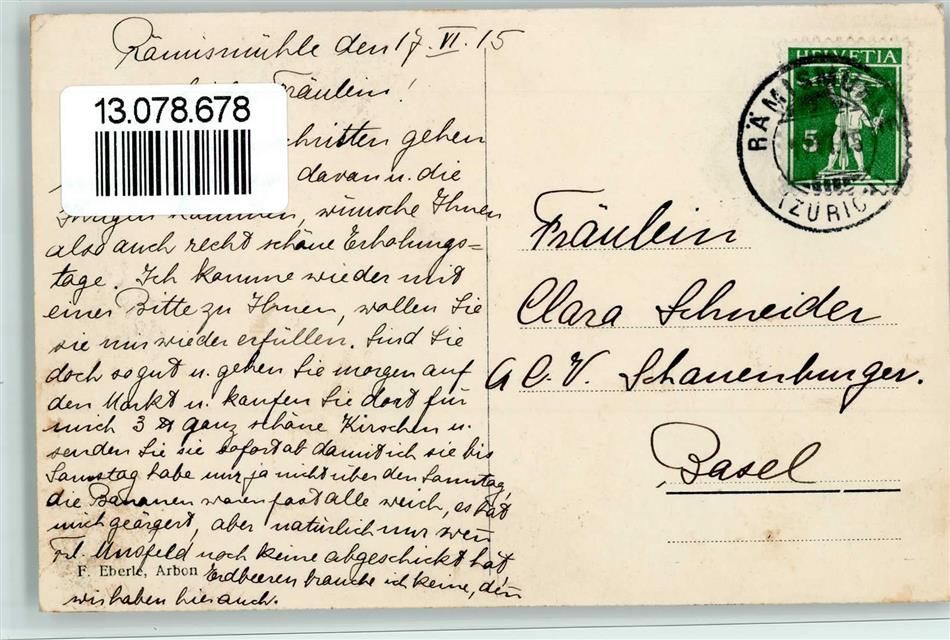 Rämismühle den 17. VI. 15
Fräulein!
13.078.678
schritten gehen
davon u. die
kommen, wünsche Ihnen
also auch recht schöne Erholungs=
tage. Ich komme wieder mit
einer Bitte zu Ihnen, wollen Sie
sie mir wieder erfüllen. Sind Sie
doch so gut u. gehen Sie morgen auf
den Markt u. kaufen Sie dort für
mich 3 ℔ ganz schöne Kirschen u.
senden Sie sie sofort ab damit ich sie bis
Samstag habe nur ja nicht über den Samstag,
die Bananen waren fast alle weich, es hat
mich geärgert, aber natürlich nur
Frl. noch keine abgeschickt hat
F. Eberle, Arbon
Erdbeeren brauche ich keine, den
wir haben hier auch.
HELVETIA
5
RÄMISMÜHLE
(ZÜRICH)
Fräulein
Clara Schneider
A C. V. Schauenburger.
Basel